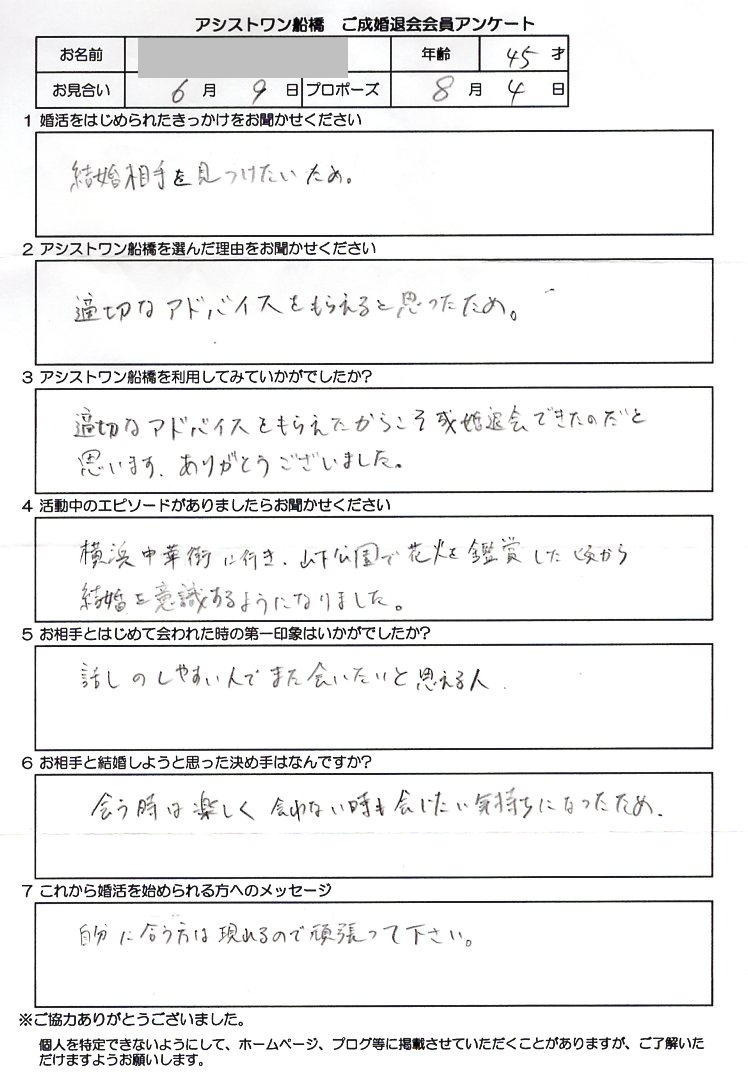 アシストワン船橋 ご成婚退会会員アンケート
お名前 年齢 45 才
お見合い 6 月 9 日 プロポーズ 8 月 4 日
1 婚活をはじめられたきっかけをお聞かせください
結婚相手を見つけたいため。
2 アシストワン船橋を選んだ理由をお聞かせください
適切なアドバイスをもらえると思ったため。
3 アシストワン船橋を利用してみていかがでしたか?
適切なアドバイスをもらえたからこそ成婚退会できたのだと
思います。ありがとうございました。
4 活動中のエピソードがありましたらお聞かせください
横浜中華街に行き、山下公園で花火を鑑賞した頃から
結婚を意識するようになりました。
5 お相手とはじめて会われた時の第一印象はいかがでしたか?
話しのしやすい人でまた会いたいと思える人.
6 お相手と結婚しようと思った決め手はなんですか?
会う時は楽しく会わない時も会いたい気持ちになったため.
7 これから婚活を始められる方へのメッセージ
自分に合う方は現れるので頑張って下さい。
※ご協力ありがとうございました。
個人を特定できないようにして、ホームページ、ブログ等に掲載させていただくことがありますが、ご了解いた
だけますようお願いします。